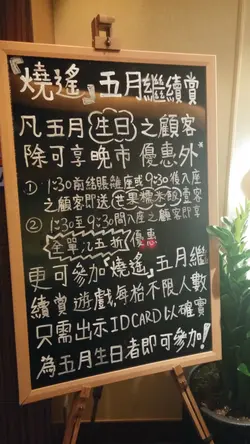 『燒遙』五月繼續賞
凡五月生日之顧客
除可享晚市優惠外*
① 7:30前結賬離座或9:30後入座
之顧客即送芒果糯米飯壹客
② 7:30至9:30間入座之顧客即享
全單八五折優惠
更可參加『燒遙』五月繼
續賞遊戲每枱不限人數
只需出示IDCARD以確實
為五月生日者即可參加!